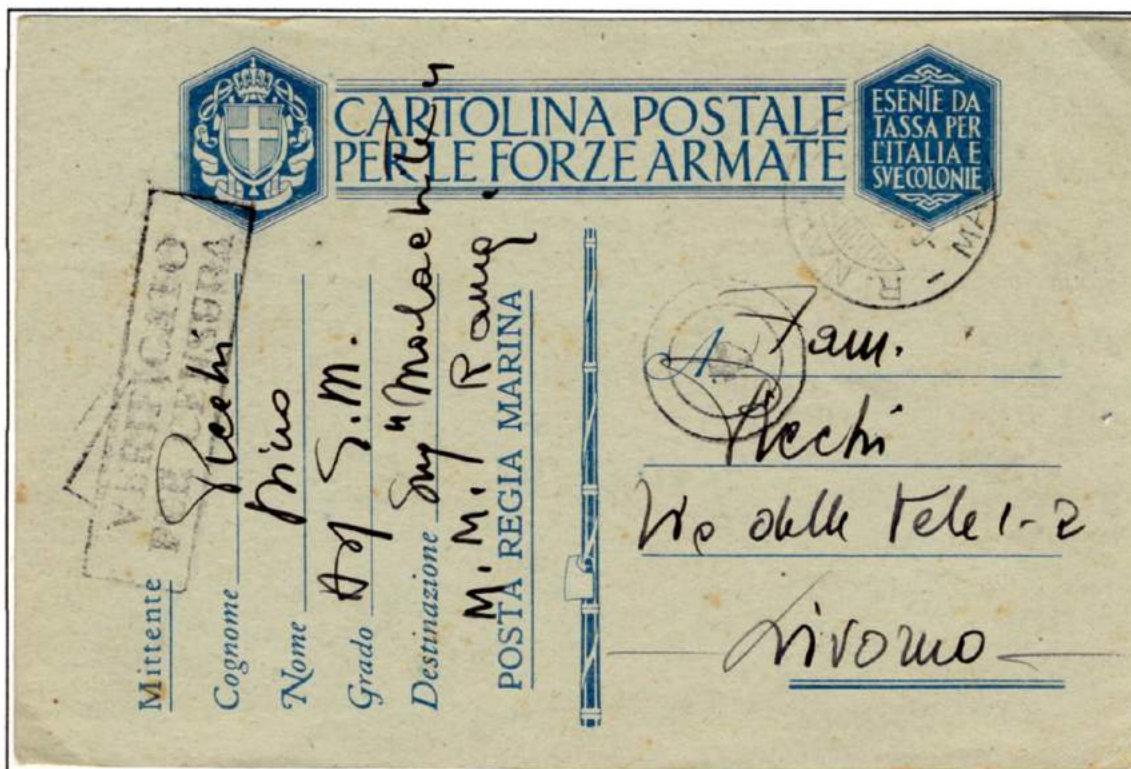 CARTOLINA POSTALE
PER LE FORZE ARMATE
ESENTE DA
TASSA PER
L'ITALIA E
SVE COLONIE
VERIFICATO
PER CENSURA
Mittente
Cognome
Nome
Grado
Destinazione
M. M. Roma
POSTA REGIA MARINA
R. NA
MA
A
Fam.
Via delle Tele 1-2
Livorno